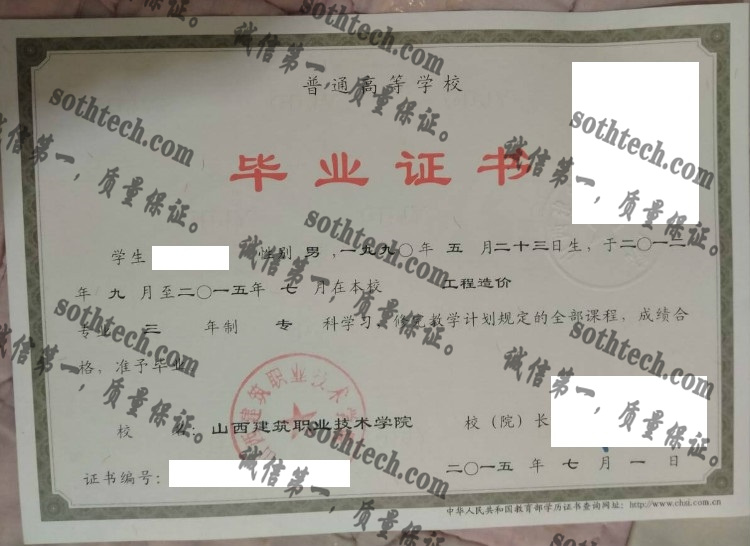 普通高等学校
毕业证书
学生 性别 男，一九九〇年 五 月二十三日生，于二〇一二
年 九 月至二〇一五年 七 月在本校 工程造价
专业 三 年制 专 科学习，修完教学计划规定的全部课程，成绩合
格，准予毕业
校 名：山西建筑职业技术学院 校（院）长
山西建筑职业技术学院
二〇一五 年 七 月 一 日
证书编号：
中华人民共和国教育部学历证书查询网址：http://www.chsi.com.cn
sothtech.com
诚信第一，质量保证。
sothtech.com
诚信第一，质量保证。
sothtech.com
诚信第一，质量保证。
sothtech.com
诚信第一，质量保证。
sothtech.com
诚信第一，质量保证。
sothtech.com
诚信第一，质量保证。
sothtech.com
诚信第一，质量保证。
sothtech.com
诚信第一，质量保证。